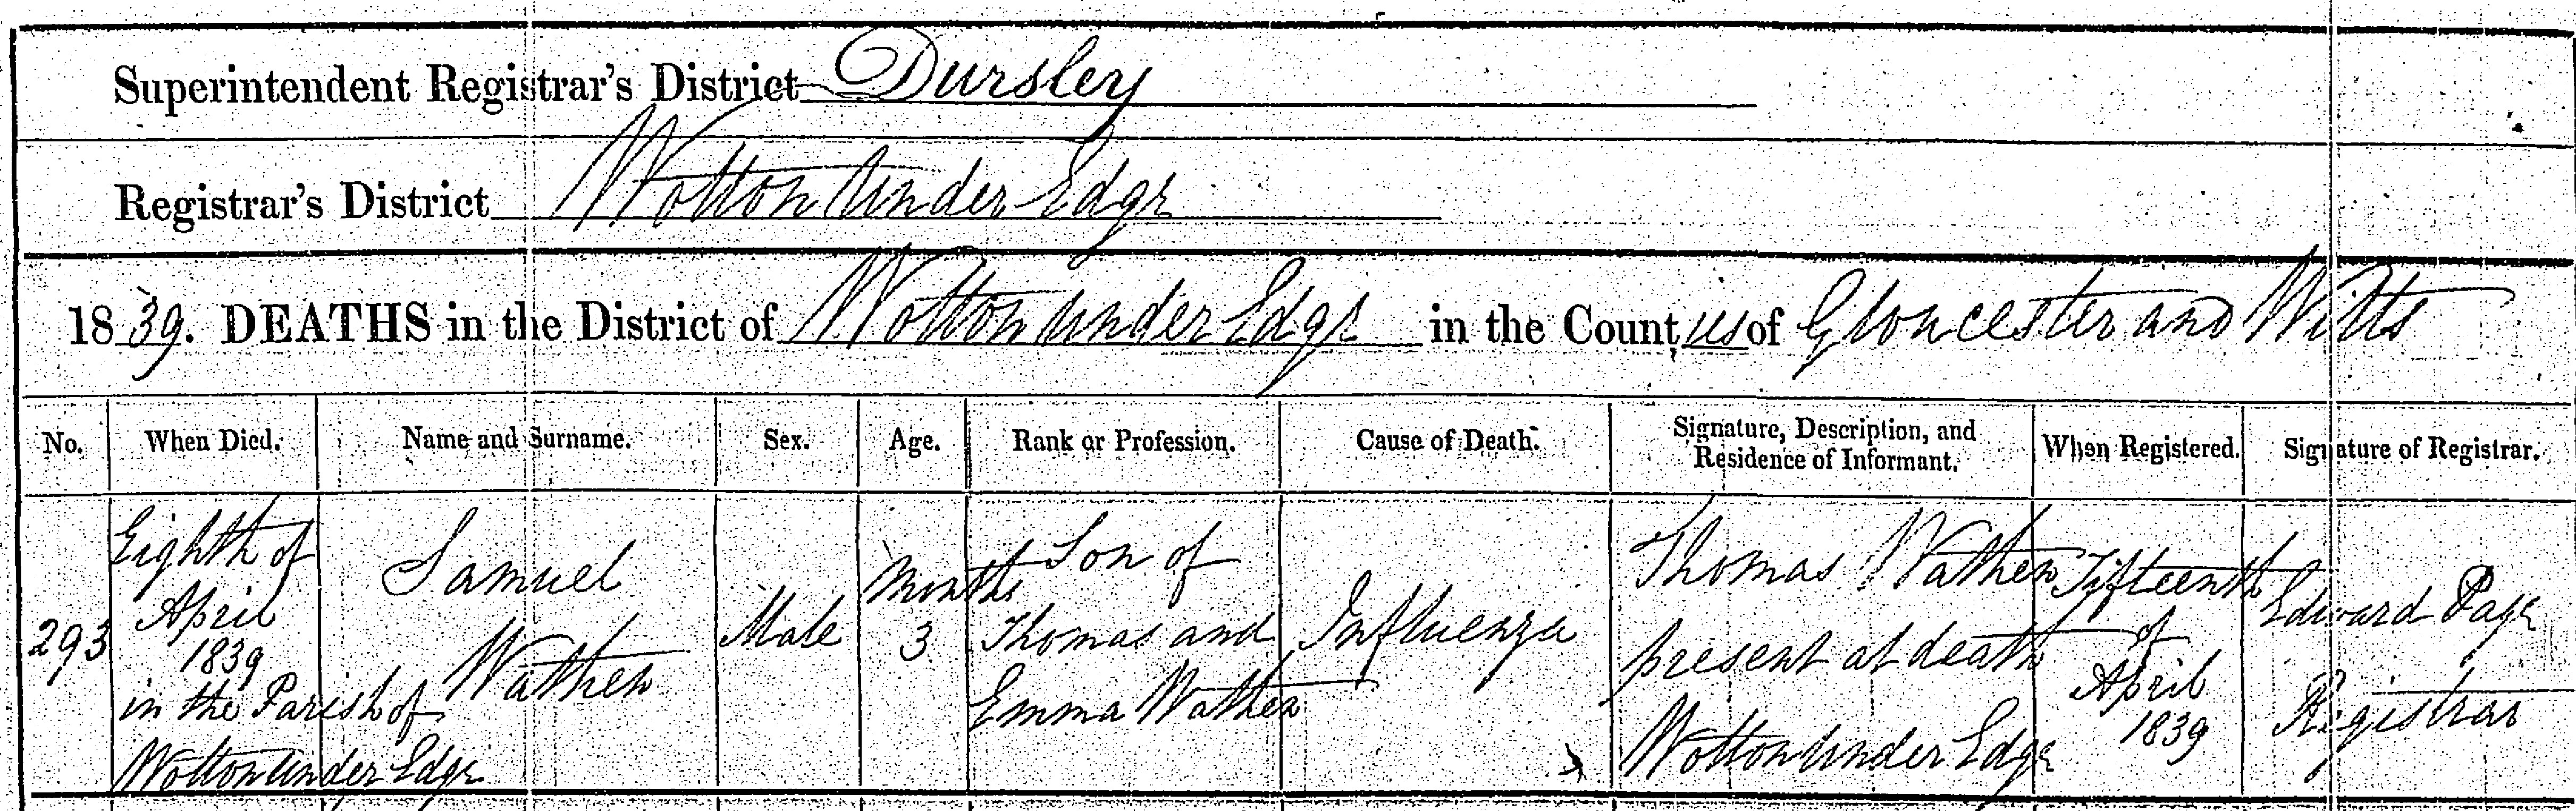 Superintendent Registrar's District Dursley
Registrar's District Wotton Under Edge
1839. DEATHS in the District of Wotton under Edge in the Counties of Gloucester and Wilts
No. When Died. Name and Surname. Sex. Age. Rank or Profession. Cause of Death. Signature, Description, and Residence of Informant. When Registered. Signature of Registrar.
293
Eighth of
April
1839
in the Parish of
Wotton under Edge
Samuel
Wathen
Male
Months
3
Son of
Thomas and
Emma Wathen
Influenza
Thomas Wathen
present at death
Wotton Under Edge
Fifteenth
of
April
1839
Edward Page
Registrar